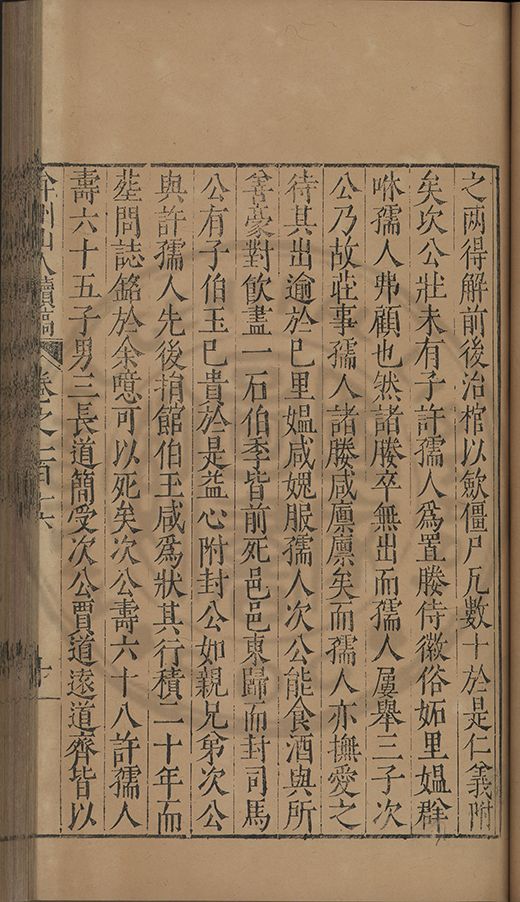 之两得解前後治棺以斂僵尸凡數十於是仁義附
矣次公壯未有子許孺人爲置媵侍徽俗妬里媪群
咻孺人弗顧也然諸媵卒無出而孺人屢舉三子次
公乃故莊事孺人諸媵咸廪廪矣而孺人亦撫愛之
待其出逾於巳里媪咸媿服孺人次公能食酒與所
善豪對飲盡一石伯季皆前死邑邑東歸而封司馬
公有子伯玉巳貴於是益心附封公如親兄弟次公
與許孺人先後捐館伯玉咸爲狀其行積二十年而
塟問誌銘於余噫可以死矣次公壽六十八許孺人
壽六十五子男三長道簡受次公賈道遠道齊皆以
弇州山人續稿 卷之一百十六 十一